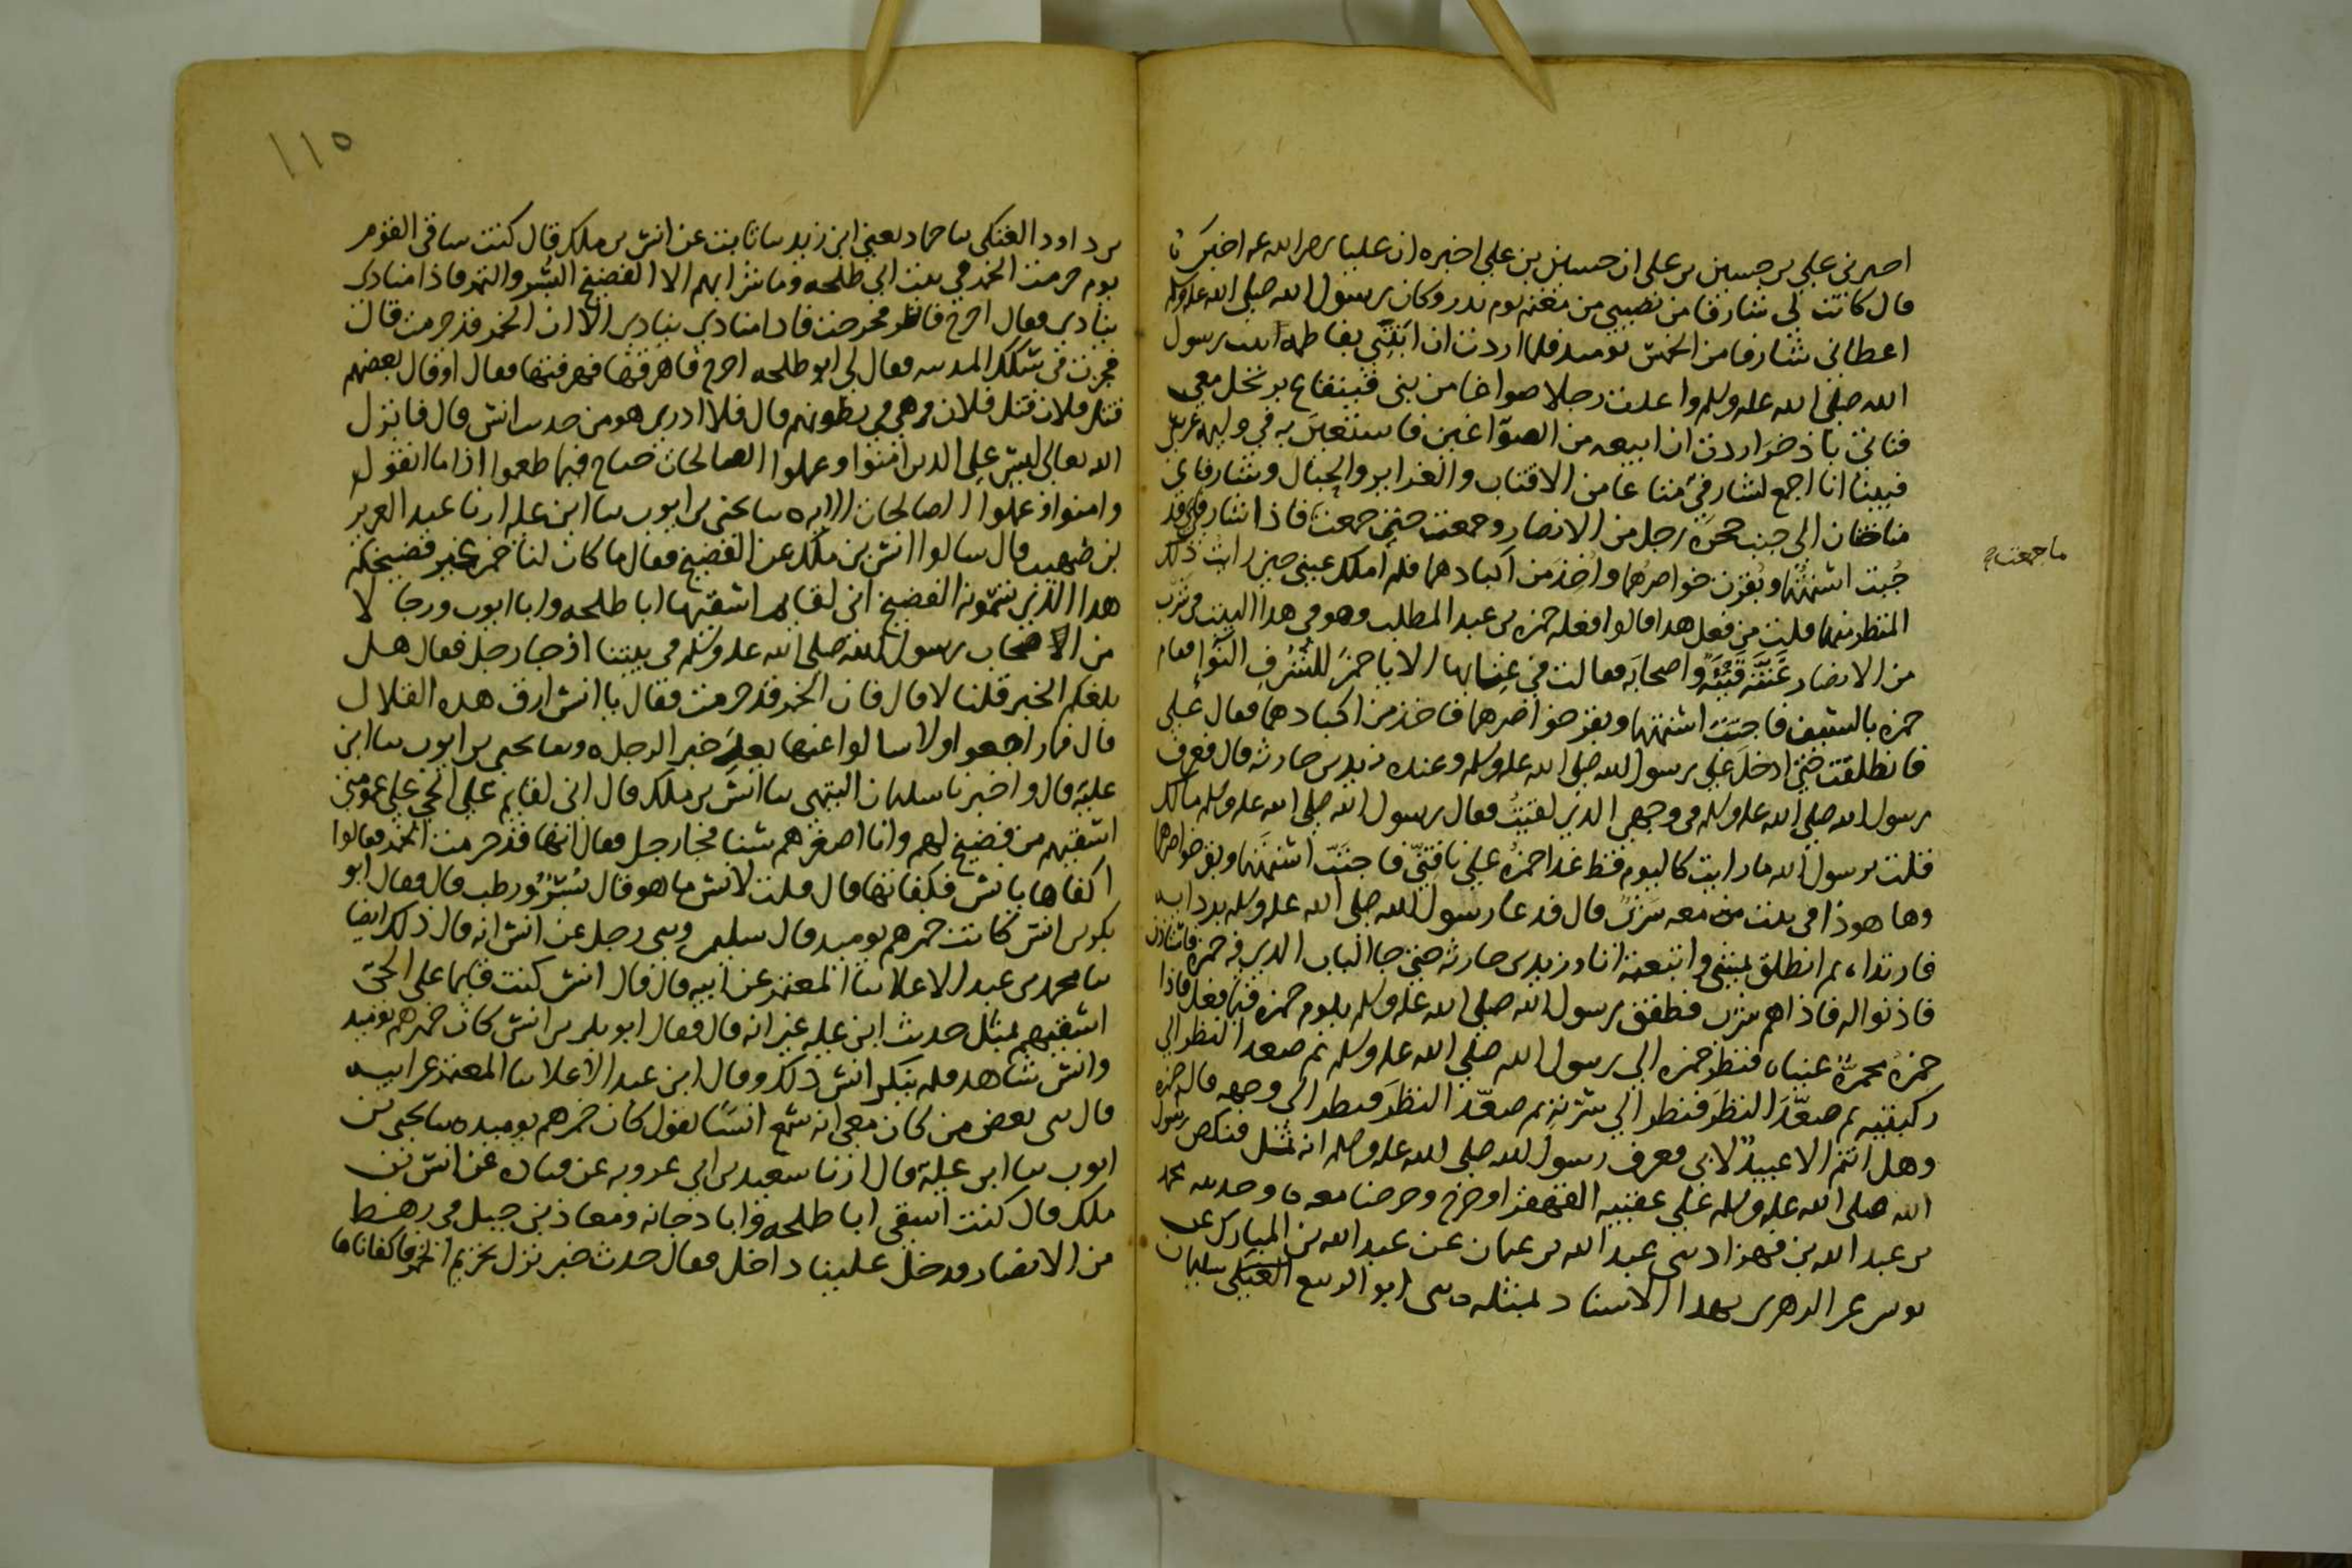 اخبرني علي بن حسين بن علي ان حسين بن علي اخبره ان عليا رضي الله عنه اخبره
قال كانت لي شارفا من نصيبي من مغنم يوم بدر وكان رسول الله صلى الله عليه وسلم
اعطاني شارفا من الخمس يوميذ فلما اردت ان ابتني بفاطمة ابنت رسول
الله صلى الله عليه وسلم واعدت رجلا صواغا من بني قينقاع يرتحل معي
فناتي باذخر اردت ان ابيعه من الصواغين فاستعين به في وليمة عرسي
فبينا انا اجمع لشارفي متاعا من الاقتاب والغراير والحبال وشارفاي
مناختان الى جنب حجرة رجل من الانصار وجمعت حتى جمعت فاذا شارفي قد
ما جمعت
جبت اسنمتهما وبقرت خواصرهما واخذ من اكبادهما فلم املك عيني حين رايت ذلك
المنظر منهما قلت من فعل هدا قالوا فعله حمزه بن عبد المطلب وهو في هدا البيت في شرب
من الانصار غنته قينة واصحابه فقالت في غنايها الا يا حمز للشرف النواء فقام
حمزه بالسيف فاجتب اسنمتهما وبقر خواصرهما فاخذ من اكبادهما فقال علي
فانطلقت حتى ادخل على رسول الله صلى الله عليه وسلم وعنده زيد بن حارثه قال فعرف
رسول الله صلى الله عليه وسلم في وجهي الذي لقيت فقال رسول الله صلى الله عليه وسلم مالك
قلت يرسول الله ما رايت كاليوم قط عدا حمزة على ناقتي فاجتب اسنمتهما وبقر خواصرهما
وها هو ذا في بيت معه شرب قال فدعا رسول الله صلى الله عليه وسلم بردايه
فارتداه ثم انطلق يمشي واتبعته انا وزيد بن حارثه حتى جا الباب الدي فيه حمزه فاستاذن
فاذنوا له فاذا هم شرب فطفق رسول الله صلى الله عليه وسلم يلوم حمزه فيما فعل فاذا
حمزة محمرة عيناه فنظر حمزه الى رسول الله صلى الله عليه وسلم ثم صعد النظر الى
ركبتيه ثم صعد النظر فنظر الى سرته ثم صعد النظر فنظر الى وجهه فقال حمزه
وهل انتم الا عبيد لابي فعرف رسول الله صلى الله عليه وسلم انه ثمل فنكص رسول
الله صلى الله عليه وسلم على عقبيه القهقرا وخرج وخرجنا معه ه وحدثنيه محمد
بن عبد الله بن قهزاد ثني عبد الله بن عثمان عن عبد الله بن المبارك عن
يونس عن الزهري بهدا الاسناد بمثله ه ثني ابو الربيع العتكي سليمان
١١٥
بن داود العتكي نا حماد يعني ابن زيد نا ثابت عن انس بن ملك قال كنت ساقي القوم
يوم حرمت الخمر في بيت ابي طلحه وما شرابهم الا الفضيخ البسر والتمر فاذا منادي
ينادي فقال اخرج فانظر فخرجت فاذا منادي ينادي الا ان الخمر قد حرمت قال
فجرت في سكك المدينه فقال لي ابو طلحه اخرج فاهرقها فهرقتها فقال او قال بعضهم
قتل فلان قتل فلان وهي في بطونهم قال فلا ادري هو من حديث انس قال فانزل
الله تعالى ليس على الدين امنوا وعملوا الصالحات جناح فيما طعموا اذا ما اتقوا
وامنوا وعملوا الصالحات الايه ه نا يحيى بن ايوب نا ابن عليه ارنا عبد العزيز
بن صهيب قال سالوا انس بن ملك عن الفضيخ فقال ما كان لنا خمر غير فضيخكم
هدا الذي تسمونه الفضيخ اني لقايم اسقيها ابا طلحه وابا ايوب ورجالا
من اصحاب رسول الله صلى الله عليه وسلم في بيتنا اذ جا رجل فقال هل
بلغكم الخبر قلنا لا قال فان الخمر قد حرمت فقال يا انس ارق هده القلال
قال فما راجعوا ولا سالوا عنها بعد خبر الرجل ه ونا يحيى بن ايوب نا ابن
علية قال واخبرنا سليمان التيمي نا انس بن ملك قال اني لقايم على الحي على عمومتي
اسقيهم من فضيخ لهم وانا اصغرهم سنا فجا رجل فقال انها قد حرمت الخمر فقالوا
اكفاها يا انس فكفاتها قال قلت لانس ما هو قال بسر ورطب قال فقال ابو
بكر بن انس كانت خمرهم يوميذ قال سليمن وثني رجل عن انس انه قال ذلك ايضا
نا محمد بن عبد الاعلا نا المعتمر عن ابيه قال قال انس كنت قايما على الحي
اسقيهم بمثل حديث ابن عليه غير انه قال فقال ابو بكر بن انس كان خمرهم يوميذ
وانس شاهد فلم ينكر انس ذلك وقال ابن عبد الاعلا نا المعتمر عن ابيه
قال ثني بعض من كان معي انه سمع انسا يقول كان خمرهم يوميذ ه نا يحيى بن
ايوب نا ابن علية قال ارنا سعيد بن ابي عروبه عن قتاده عن انس بن
ملك قال كنت اسقي ابا طلحه وابا دجانه ومعاذ بن جبل في رهط
من الانصار فدخل علينا داخل فقال حدث خبر نزل تحريم الخمر فاكفاناها